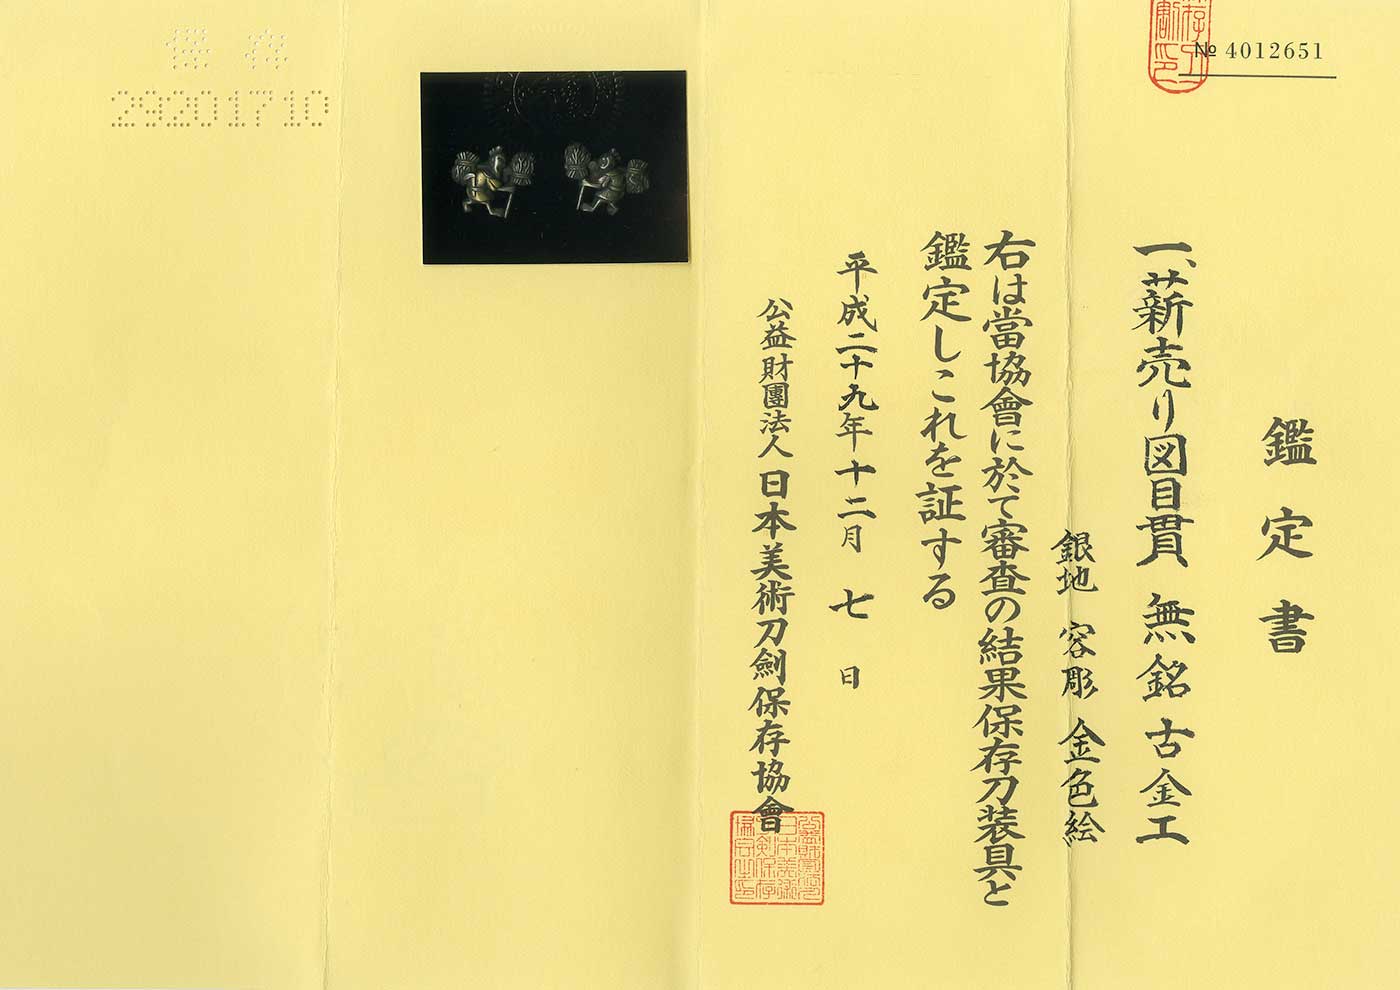 № 4012651
鑑定書
一、薪売り図目貫 無銘 古金工
銀地 容彫 金色絵
右は當協會に於て審査の結果保存刀装具と
鑑定しこれを証する
平成二十九年十二月 七 日
公益財團法人 日本美術刀劍保存協會
保存
29201710